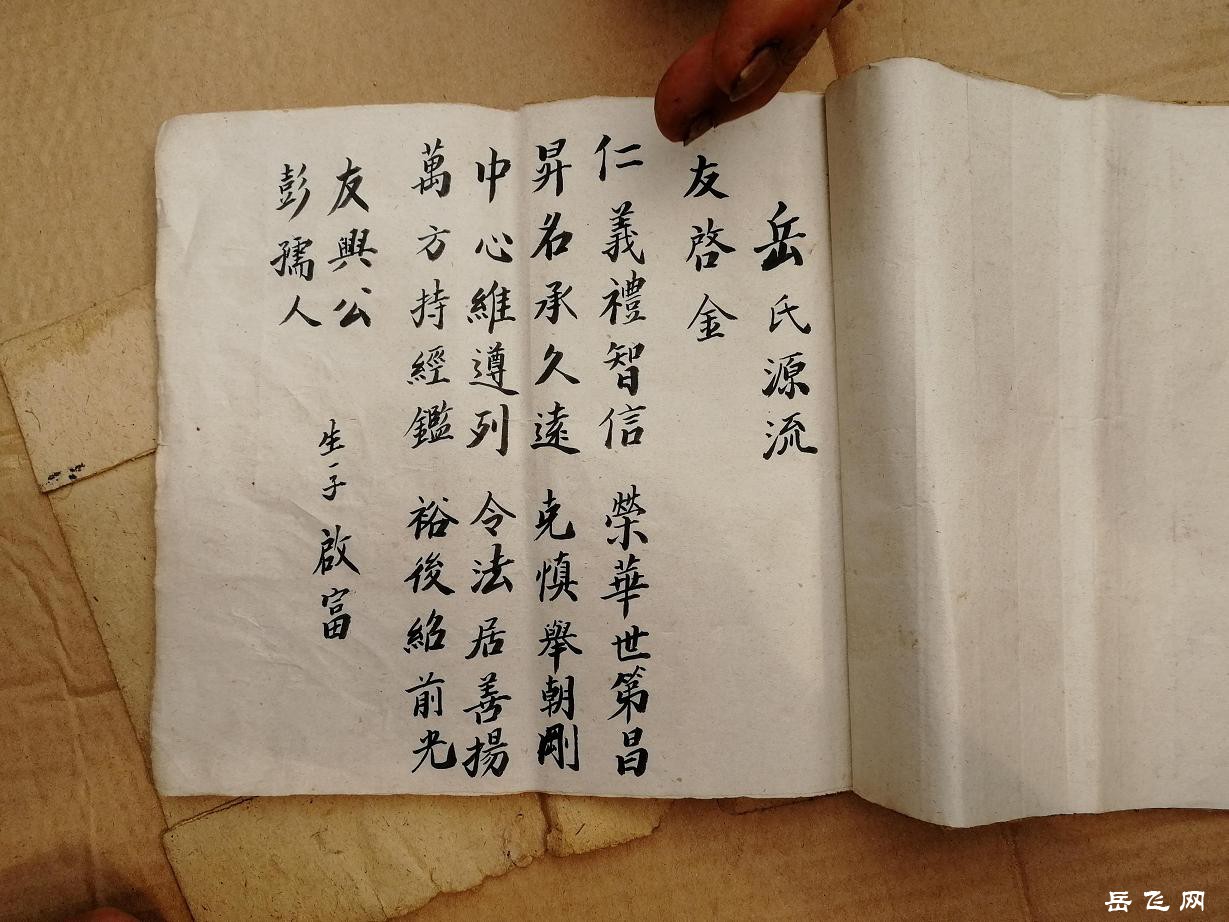 岳氏源流
友啓金
仁義禮智信 榮華世第昌
昇名承久遠 克慎舉朝剛
中心維遵列 令法居善揚
萬方持經鑑 裕後紹前光
友興公
彭孺人
生子 啟富
岳飞网